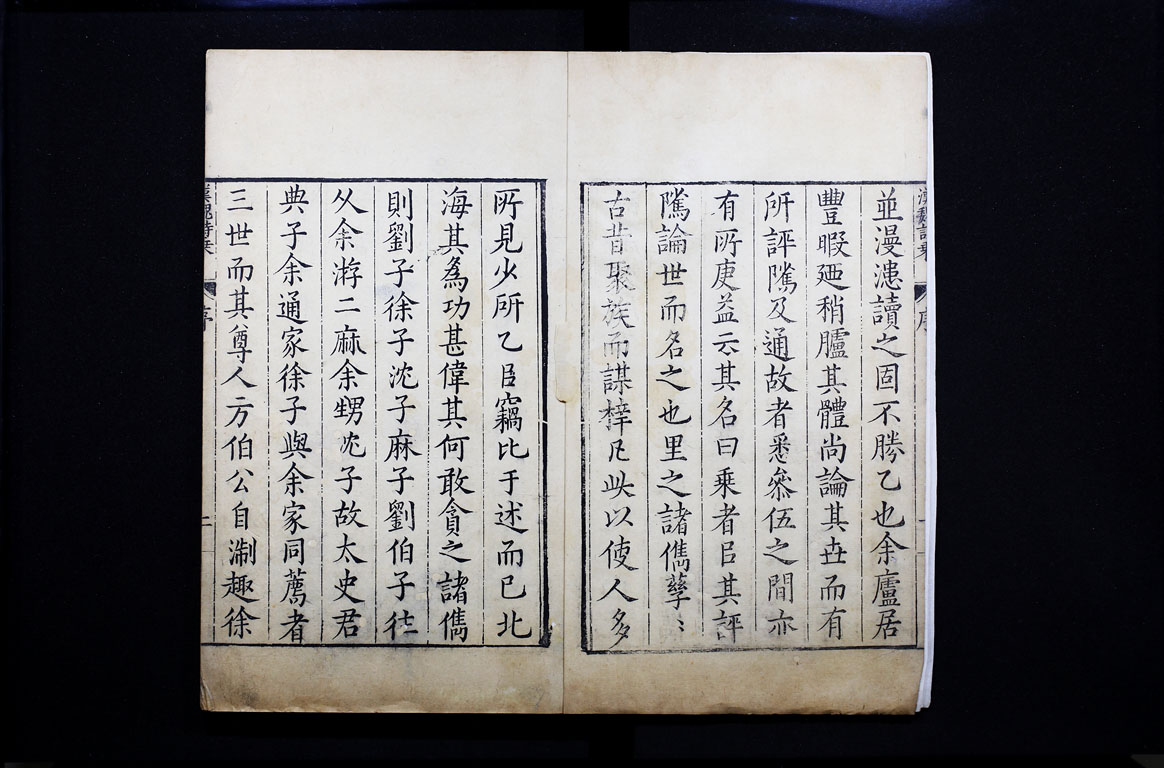 並漫漶讀之固不勝乙也余廬居
豐暇廼稍臚其體尚論其世而有
所評隲及通故者悉叅伍之間亦
有所庚益云其名曰乘者㠯其評
隲論世而名之也里之諸儁孳〻
古昔聚族而謀梓凡此以使人多
所見少所乙㠯竊比于述而已北
海其爲功甚偉其何敢貪之諸儁
則劉子徐子沈子麻子劉伯子徃
从余游二麻余甥沈子故太史君
典子余通家徐子與余家同薦者
三世而其尊人方伯公自淛趣徐
漢魏詩乘
序
二